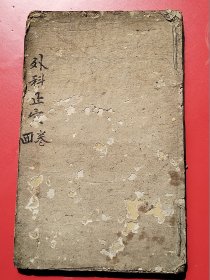 外科正宗卷
四